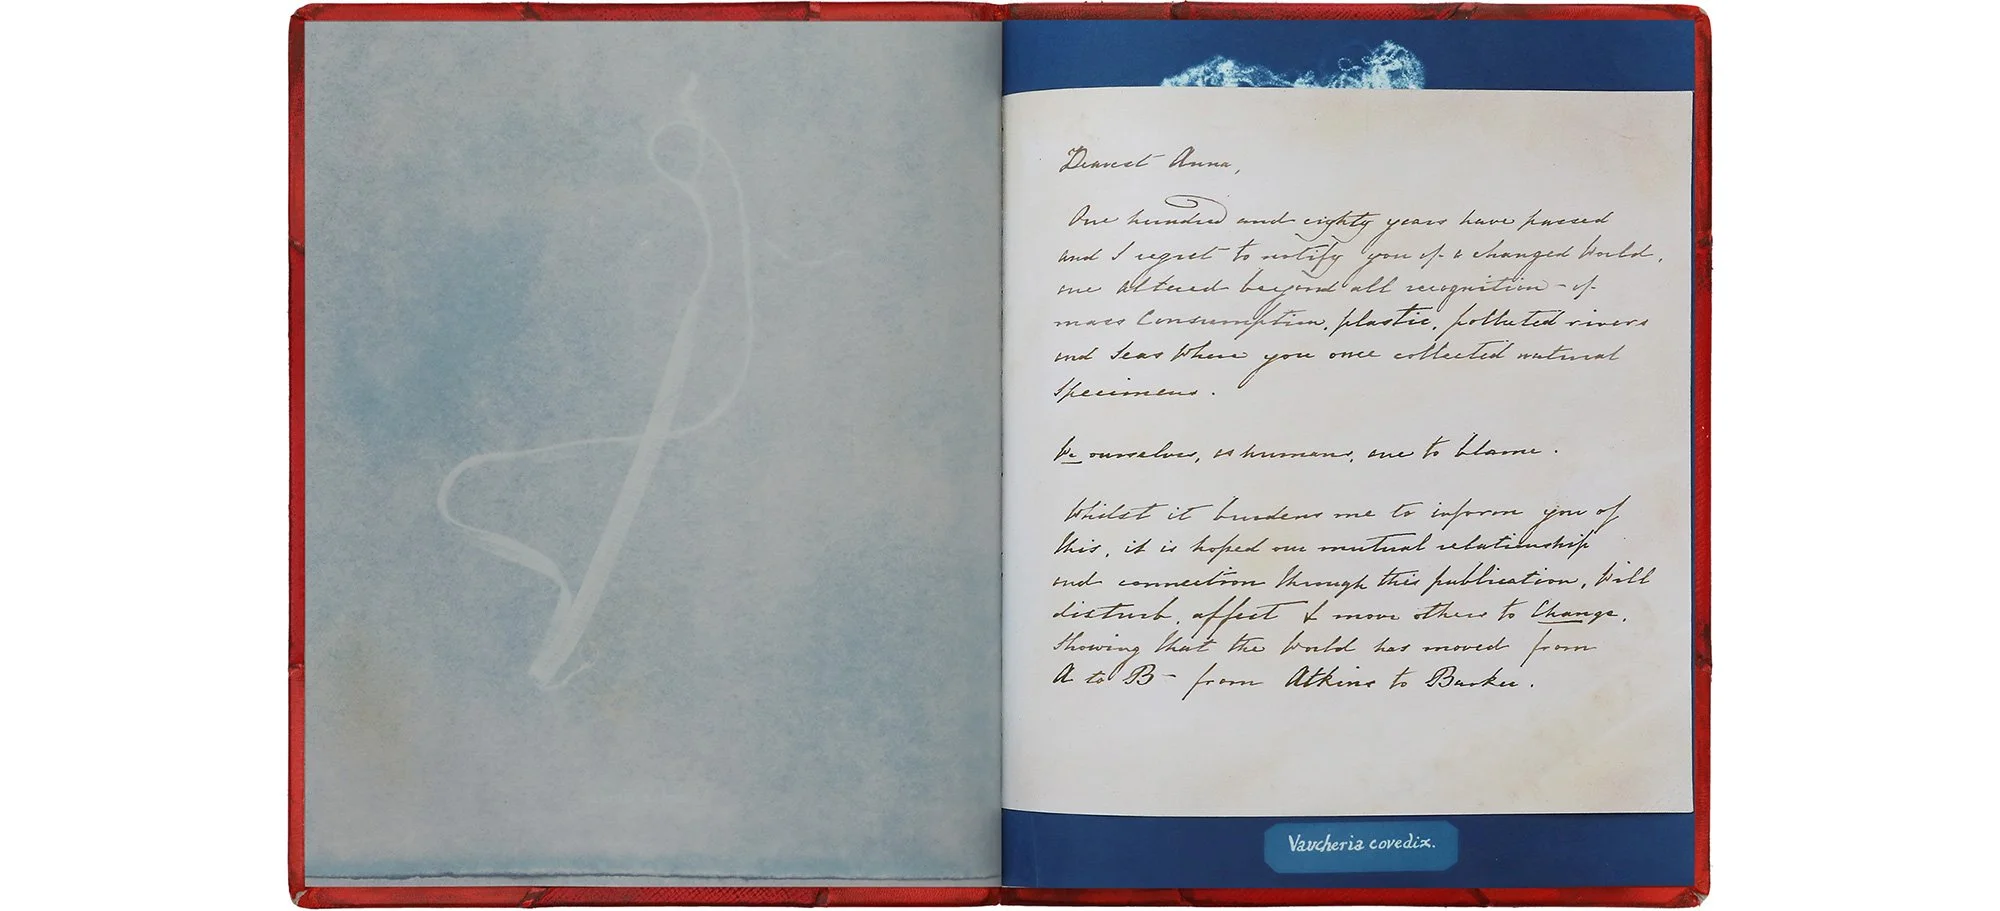 Dearest Anna,
One hundred and eighty years have passed
and I regret to notify you of a changed World,
one altered beyond all recognition - of
mass Consumption, plastic, polluted rivers
and Seas Where you once collected natural
Specimens.
We ourselves, as humans, are to blame.
Whilst it burdens me to inform you of
this, it is hoped our mutual relationship
and connection through this publication, Will
disturb, affect & move others to Change,
Showing that the World has moved from
A to B - from Atkins to Barker.
Vaucheria covedix.